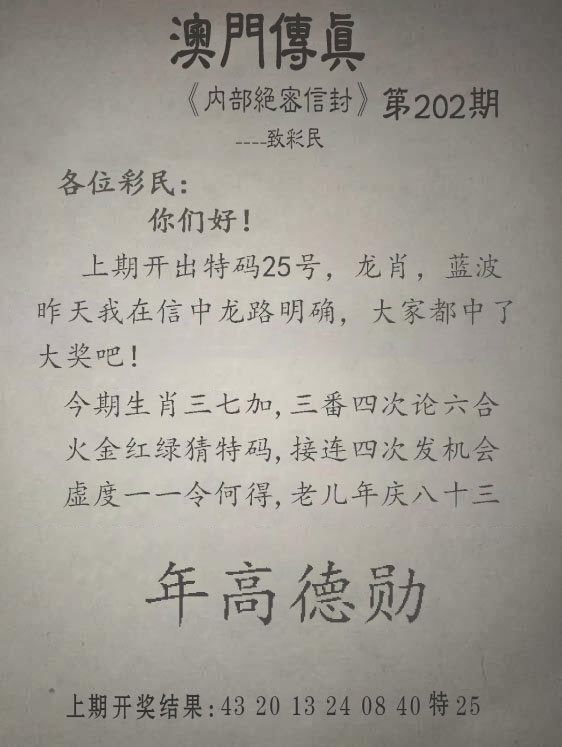 澳門傳眞
《内部絕密信封》第202期
----致彩民
各位彩民:
你们好!
上期开出特码25号，龙肖，蓝波
昨天我在信中龙路明确，大家都中了
大奖吧!
今期生肖三七加,三番四次论六合
火金红绿猜特码,接连四次发机会
虚度一一令何得,老儿年庆八十三
年高德勋
上期开奖结果:43 20 13 24 08 40 特 25